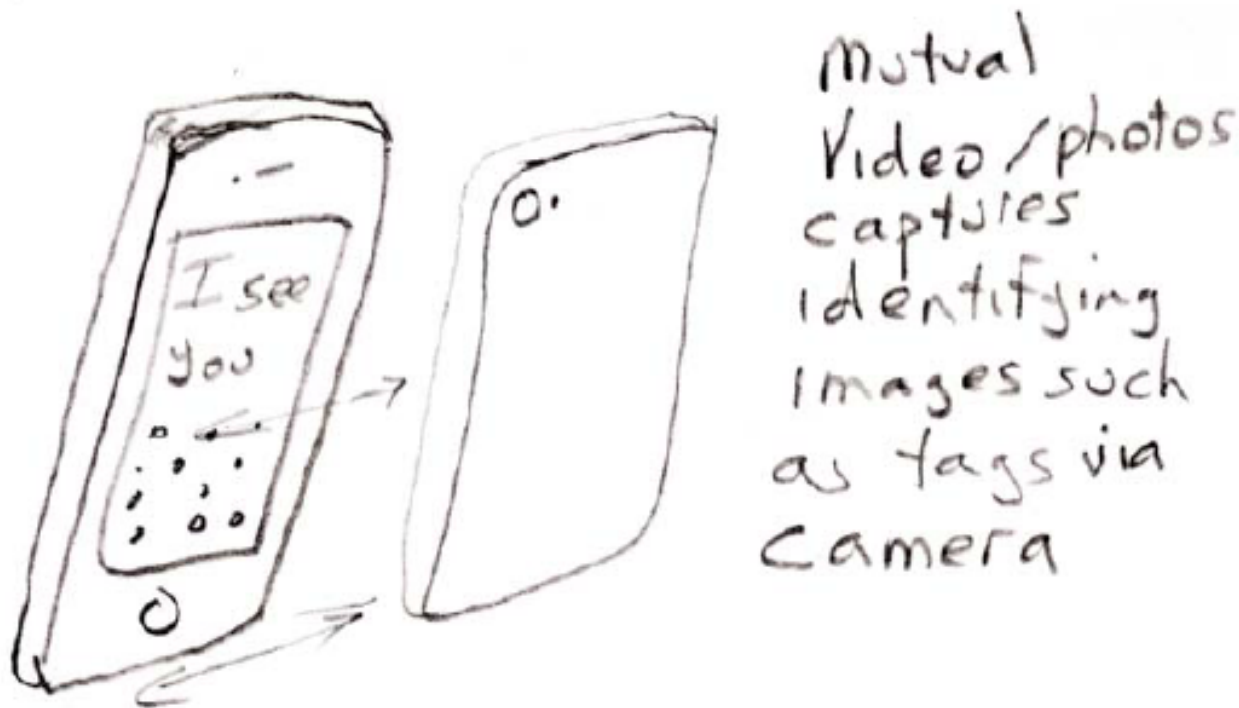 I see
you
Mutual
Video/photos
captures
identifying
images such
as tags via
Camera